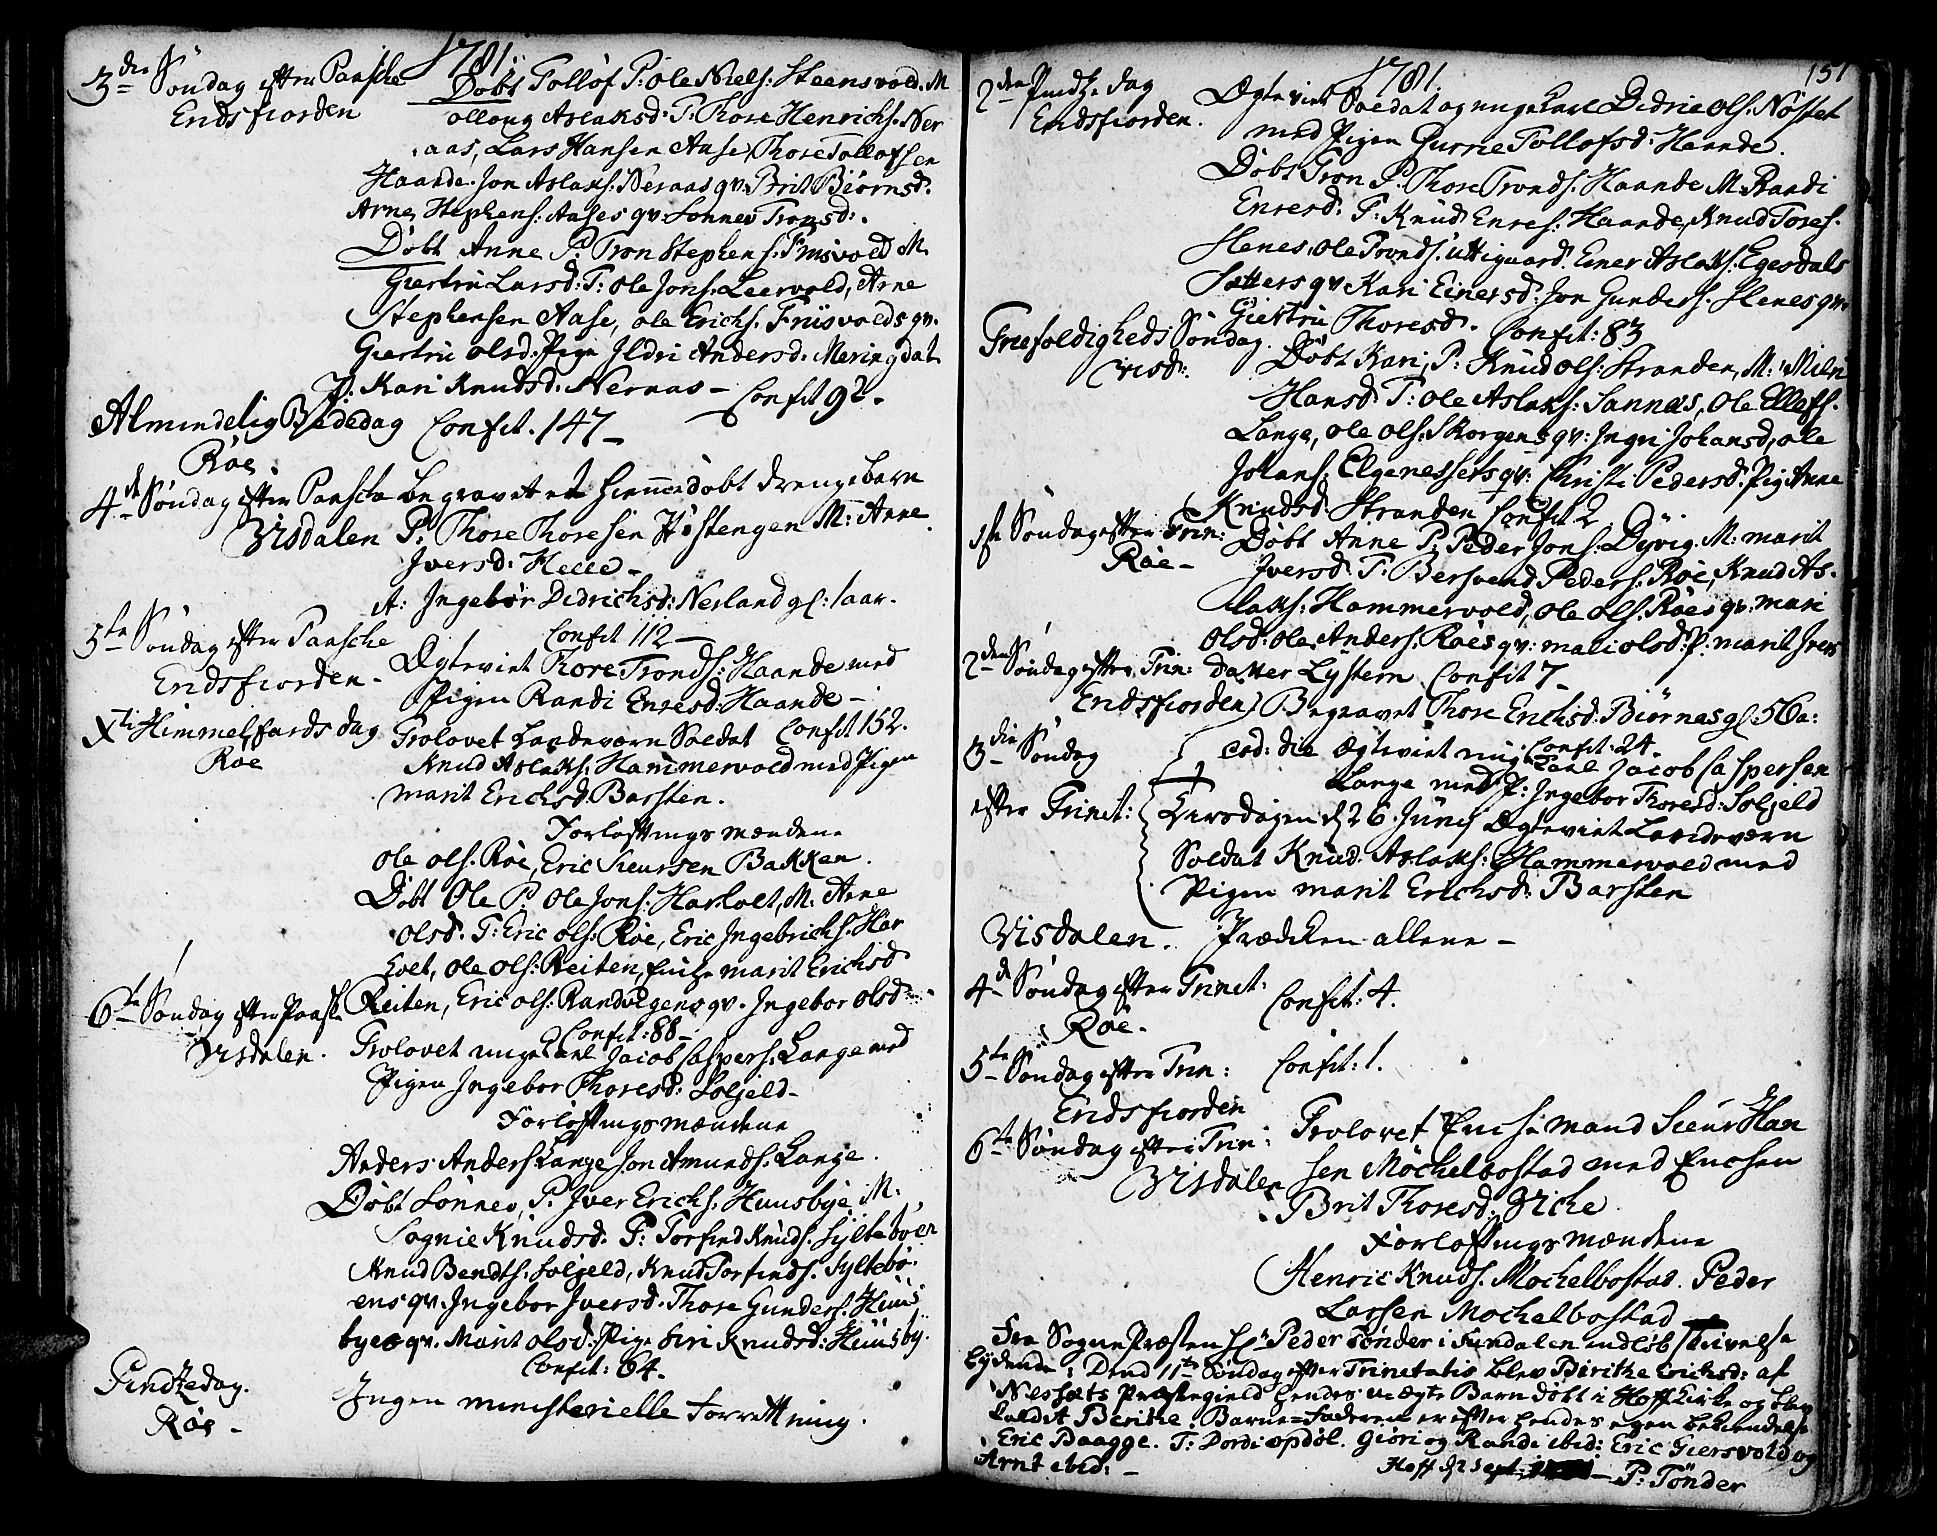 1781.
3die Søndag efter Paasche
Eridsfiorden
Døbt Tollof P: Ole Niels: Steensvold. M
ollaug Aslaksd: T: Thore Henrichs. Ner
aas, Lars Hansen Aase, Thore Tollofsen
Haande. Jon Aslaks: Neraas qv: Brit Biørnsd.
Arne Stephens: Aases qv: Sonnev Tronsd:.
Døbt Anne P. Tron Stephens. Friisvold M.
Giertru Larsd: T: Ole Jons: Leervold, Arne
Stephensen Aase, ole Erichs. Friisvolds qv.
Giertru olsd: Pige Ildri Andersd. Meringdal
P. Kari Knudsd. Nernas – Confit 92.
Almindelig Bededag Confit. 147 –
Røe.
4de Søndag efter Paasche begravet et hiemmedøbt drengebarn
Visdalen P. Thore Thoresen Høstengen M: Anne
Iversd: Helle –
it: Ingebor Didrichsd: Nerland gl: 1 aar.
Confit 112 –
5te Søndag efter Paasche
Eridsfiorden –
Ægteviet Thore Tronds: Haande med
Pigen Randi Enresd: Haande –
Xti Himmelfards dag
Røe
Trolovet Landeværn Soldat Confit 152.
Knud Aslaks: Hammervold med Pigen
Marit Erichsd: Barsten.
Forløftningsmændene
Ole ols: Røe, Eric Sieursen Bakken.
Døbt Ole P. Ole Jons: Harlvet, M: Arne
olsd. T: Eric ols: Røe, Eric Ingebrichs. Har
lvet, ole ols: Reiten, Enche Marit Erichsd
Reiten, Eric ols: Randvigens qv. Ingebor olsd:
Confit: 88 –
6te Søndag efter Paasche
Visdalen.
Trolovet unge Karl Jacob Caspers: Lange med
Pigen Ingebor Thoresd: Soljeld –
Forløftningsmændene
Anders Anders Lange Jon Amunds: Lange.
Døbt Sønnev, P. Iver Erichs: Huusbye M:
Sognie Knudsd. T: Torfind Knuds. Syltebøen
Knud Bendts: Soljeld, Knud Torfinds. Syltebø.
ens qv. Ingebor Iversd. Thore Gunders. Huus
byes qv. Marit olsd: Pige Siri Knudsd: Huusby.
Confit: 64.
Pindtzedag.
Røe –
Ingen ministerielle Forrettning.
1781.
151
2den Pindtzedag
Eridsfiorden.
Ægteviet Soldat og unge Karl Didric ols: Nøstet
med Pigen Gurrie Tollofsd: Haande.
Døbt Tron P. Thore Tronds. Haande M: Randi
Enresd: T: Knud Enres: Haande, Knud Tores:
Henes, Ole Tronds. uttigaard. Einer Aslaks: Egesdals
Sætters qv Kari Einersd: Jon Gunders. Henes qv:
Giertru Thoresd. Confit: 83
Treefoldigheds Søndag.
Visd:
Døbt Kari, P. Knud ols: Stranden, M: Milni
Hansd. T: ole Aslaks: Sannes, Ole Ellefs.
Lange, ole ols: Skorgens qv: Ingri Johansd, ole
Johans. Elgenessets qv: Christi Pedersd. Pig Anne
Knudsd. Stranden Confit 2
1ste Søndag efter Trin:
Røe –
Døbt Anne P: Peder Jons: Dyvig. M: marit
Iversd: T: Bersvend Peders. Røe, Knud As-
laks: Hammervold, ole ols: Røes qv: mari
olsd: ole Anders. Røes qv: mali olsd: P: marit Ivers
datter Lystern Confit 7 –
2den Søndag efter Trin:
Eridsfiorden Begravet Thore Erichsd: Biørnes gl: 56 a:
Confit: 24.
3die Søndag
efter Trinet:
eod: die Ægteviet unge Karl Jacob Caspersen
Lange med P: Ingebor Thoresd: Soljeld
Tirsdagen d 26 Junij Ægteviet Landeværn
Soldat Knud Aslaks: Hammervold med
Pigen marit Erichsd: Barsten
Visdalen. Prædiken allene –
4de Søndag efter Trinet:
Røe –
Confit: 4.
5te Søndag efter Trin:
Eridsfiorden
Confit: 1.
6te Søndag efter Trin:
Visdalen
Trolovet Enchemand Sieur Han
sen Mochelbostad med Enchen
Brit Thoresd: Giche
Forløftningsmændene
Henric Knuds. Mochelbostad. Peder
Larsen Mochelbostad
Fra Sogne Præsten Hr Peder Tønder i Sundalen indløb Skrivelse
lydende: Dend 11te Søndag efter Trinetatis blev Birithe Erichsd: af
Nessets Præstegield hendes uægte Barn døbt i Hoff Kirke og blev
kaldet Berithe. Barne-Faderen er efter hendes egen bekiendelse
Eric Baagge. T: Dordi opdøl. Giøri og Randi ibid: Eric Giersvold og
Arnt ibid: –
Hoff d 2 Sept: – P: Tønder